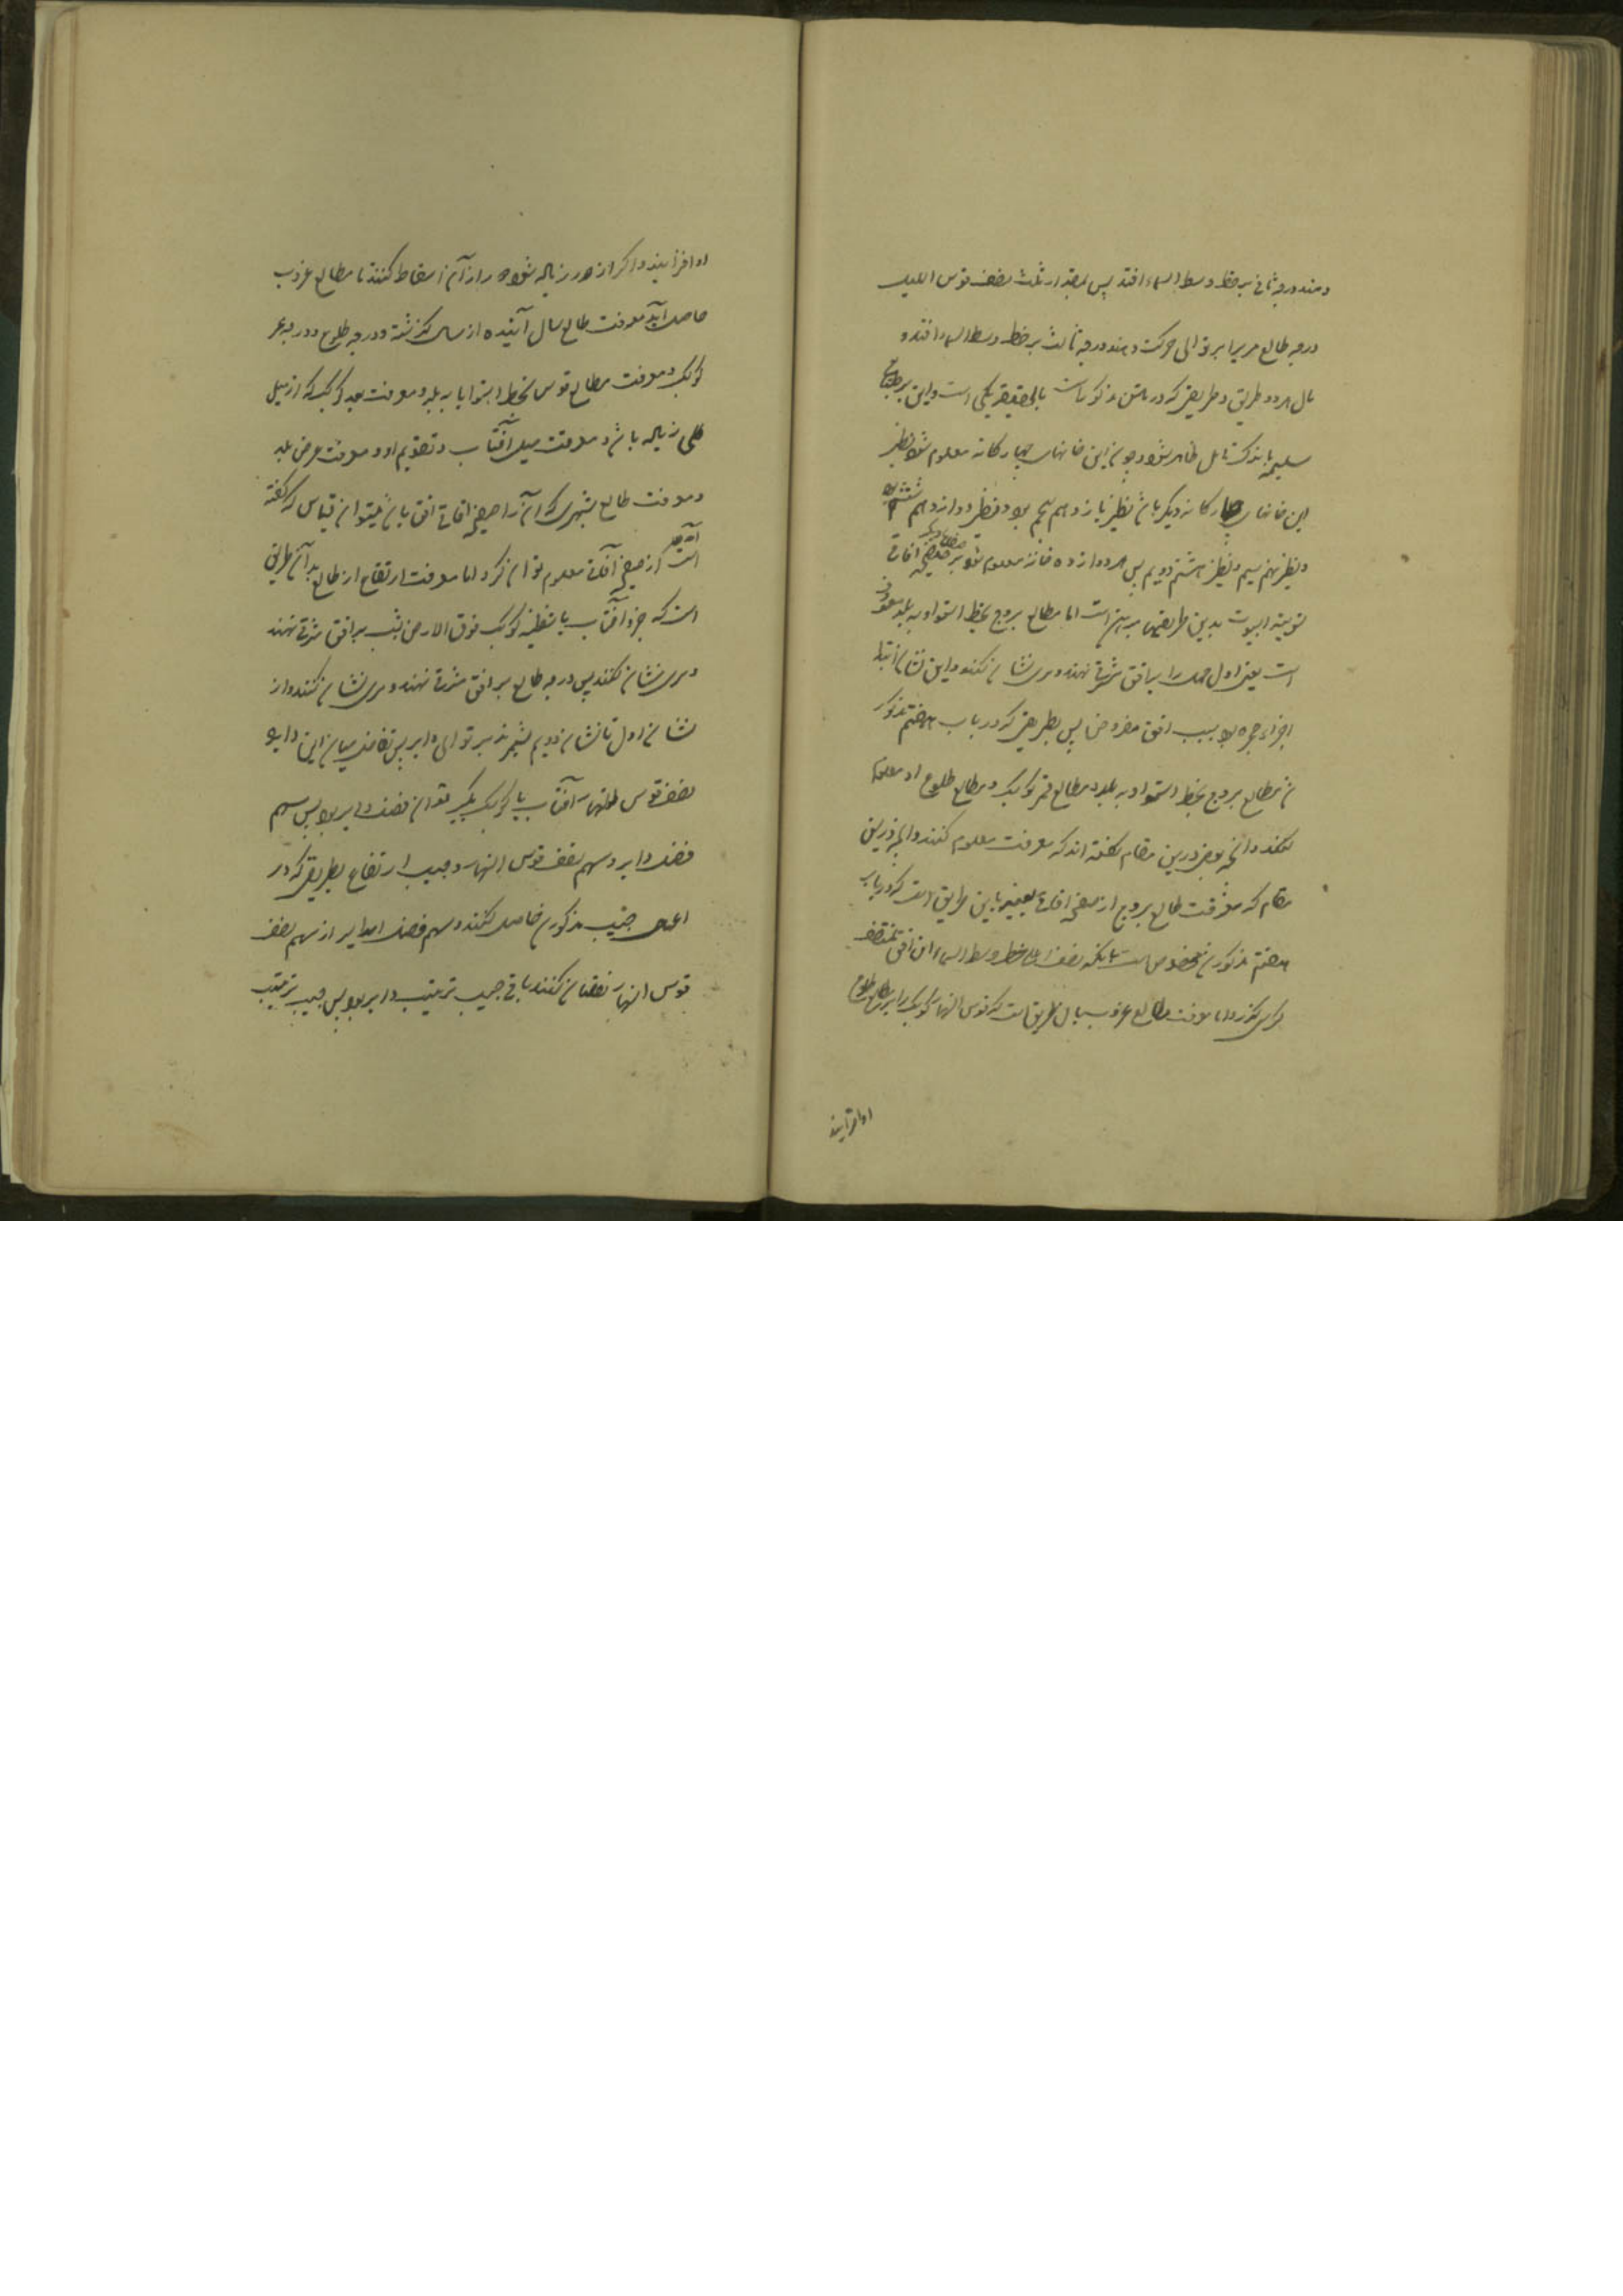 دهند درجه ثانی بر خط وسط السماء افتد پس بمقدار ثلث نصف قوس اللیل
درجه طالع مریرا بر توالی حرکت دهند درجه ثالث بر خط وسط السماء افتد و
مآل هر دو طریق و طریقی که در متن مذکورست بالحقیقه یکی است و این بر طباع
سلیمه باندک تامل ظاهر شود و چون این خانهاء چهارکانه معلوم شود نظیر
این خانهاء چهارکانه دیکر باشد نظیر یازدهم پنجم بود و نظیر دوازدهم ششم
و نظیر نهم سیم و نظیر هشتم دویم پس هر دوازده خانه معلوم شود بر صفیحه آفاقی
تسویة البیوت بدین طریقها مبرهن است اما مطالع بروج بخط استوا و به بلد معروف
است یعنی اول حمل را بر افق شرقی نهند و مری نشان کنند و این نشان ابتدا
اجزاء حجره بود بسبب افق مفروض پس بطریقی که در باب هفتم مذکور
شد مطالع بروج بخط استوا و به بلد و مطالع ممر کوکب و مطالع طلوع او معلوم
کنند و آنچه بعضی درین مقام کفته اند که معرفت معلوم کنند و آنچه درین
مقام که معرفت طالع بروج از صفیحه آفاقی بعینه باین طریق است که در باب
هفتم مذکور شد مخصوص است بانکه نصف خط وسط السماء آن افق بمنتصف
کرسی کذرد اما معرفت مطالع غروب بآن طریق است که قوس النهار کوکب را بر مطالع طلوع
او افزایند
او افزایند و اکر از دور زیاده شود دور از آن اسقاط کنند تا مطالع غروب
حاصل آید معرفت طالع سال آینده از سال کذشته و درجه طلوع و درجه ممر
کوکب و معرفت مطالع قوس بخط استوا یا به بلد و معرفت بعد کوکب که از میل
کلی زیاده باشد و معرفت میل آفتاب و تقویم او و معرفت عرض بلد
و معرفت طالع بشهری که آن را صفیحه آفاقی افق باشد میتوان قیاس که کفته
است از صفیحه آفاقی معلوم توان کرد اما معرفت ارتفاع از طالع بدان طریق
است که جزو آفتاب یا شظیه کوکب فوق الارض بشب بر افق شرقی نهند
و مری نشان کنند پس درجه طالع بر افق شرقی نهند و مری نشان کنند و از
نشان اول تا نشان دویم بشمرند بر توالی دایر پس تفاضل میان این دایر و
نصف قوس النهار آفتاب یا کوکب بکیرند آن فضل دایر بود پس سهم
فضل دایر و سهم نصف قوس النهار و جیب ارتفاع بطریقی که در
اعمال جیب مذکور شد حاصل کنند و سهم فضل الدایر از سهم نصف
قوس النهار نقصان کنند باقی جیب ترتیب دایر بود پس جیب ترتیب